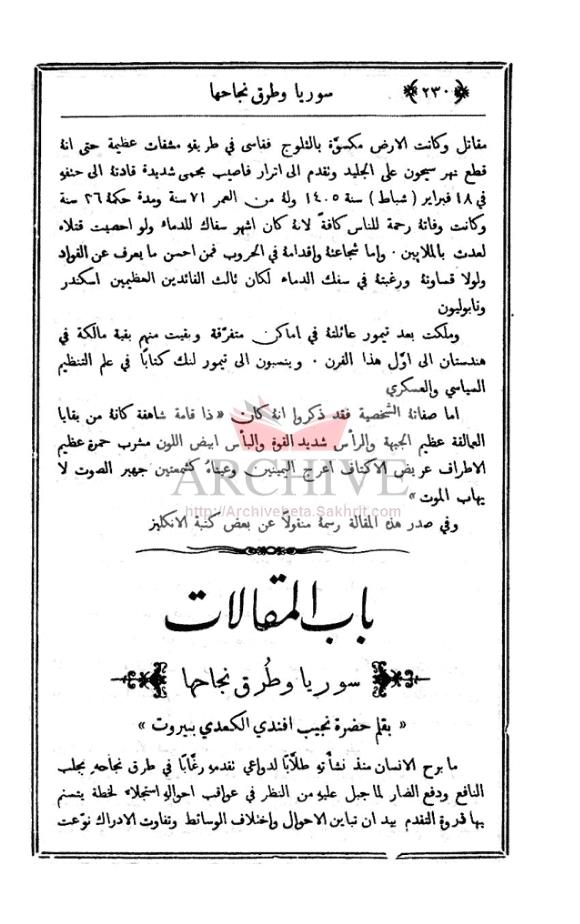 ﴿٢٣٠﴾ سوريا وطرق نجاحها
مقاتل وكانت الارض مكسوَّة بالثلوج فقاسى في طريقهِ مشقات عظيمة حتى انهُ
قطع نهر سيحون على الجليد وتقدم الى اترار فاصيب بحمى شديدة قادتهُ الى حتفهِ
في ١٨ فبراير ( شباط ) سنة ١٤٠٥ ولهُ من العمر ٧١ سنة ومدة حكمهُ ٣٦ سنة
وكانت وفاتهُ رحمة للناس كافةً لانهُ كان اشهر سفاك للدماء ولو احصيت قتلاه
لعدت بالملايين ٠ واما شجاعتهُ وإقدامهُ في الحروب فمن احسن ما يعرف عن القواد
ولولا قساوتهُ ورغبتهُ في سفك الدماء لكان ثالث القائدين العظيمين اسكندر
ونابوليون
وملكت بعد تيمور عائلتهُ في اماكن متفرقة وبقيت منهم بقية مالكة في
هندستان الى اوَّل هذا القرن ٠ وينسبون الى تيمور لنك كتابًا في علم التنظيم
السياسي والعسكري
اما صفاتهُ الشخصية فقد ذكروا انهُ كان « ذا قامة شاهقة كانهُ من بقايا
العمالقة عظيم الجبهة والرأس شديد القوة والبأس ابيض اللون مشرب حمرة عظيم
الاطراف عريض الاكتاف اعرج اليمينين وعيناهُ كشمعتين جهير الصوت لا
يهاب الموت »
وفي صدر هذه المقالة رسمهُ منقولاً عن بعض كتبة الانكليز
ARCHIVE
http://Archivebeta.Sakhrit.com
باب المقالات
سوريا وطُرق نجاحها
« بقلم حضرة نجيب افندي الكعدي ببيروت »
ما برح الانسان منذ نشأتهِ طلَّابًا لدواعي تقدمهِ رغَّابًا في طرق نجاحهِ بجلب
النافع ودفع الضار لما جبل عليهِ من النظر في عواقب احوالهِ استجلاءً لخطة يتسنم
بها ذروة التقدم بيد ان تباين الاحوال وإختلاف الوسائط وتفاوت الادراك نوَّعت